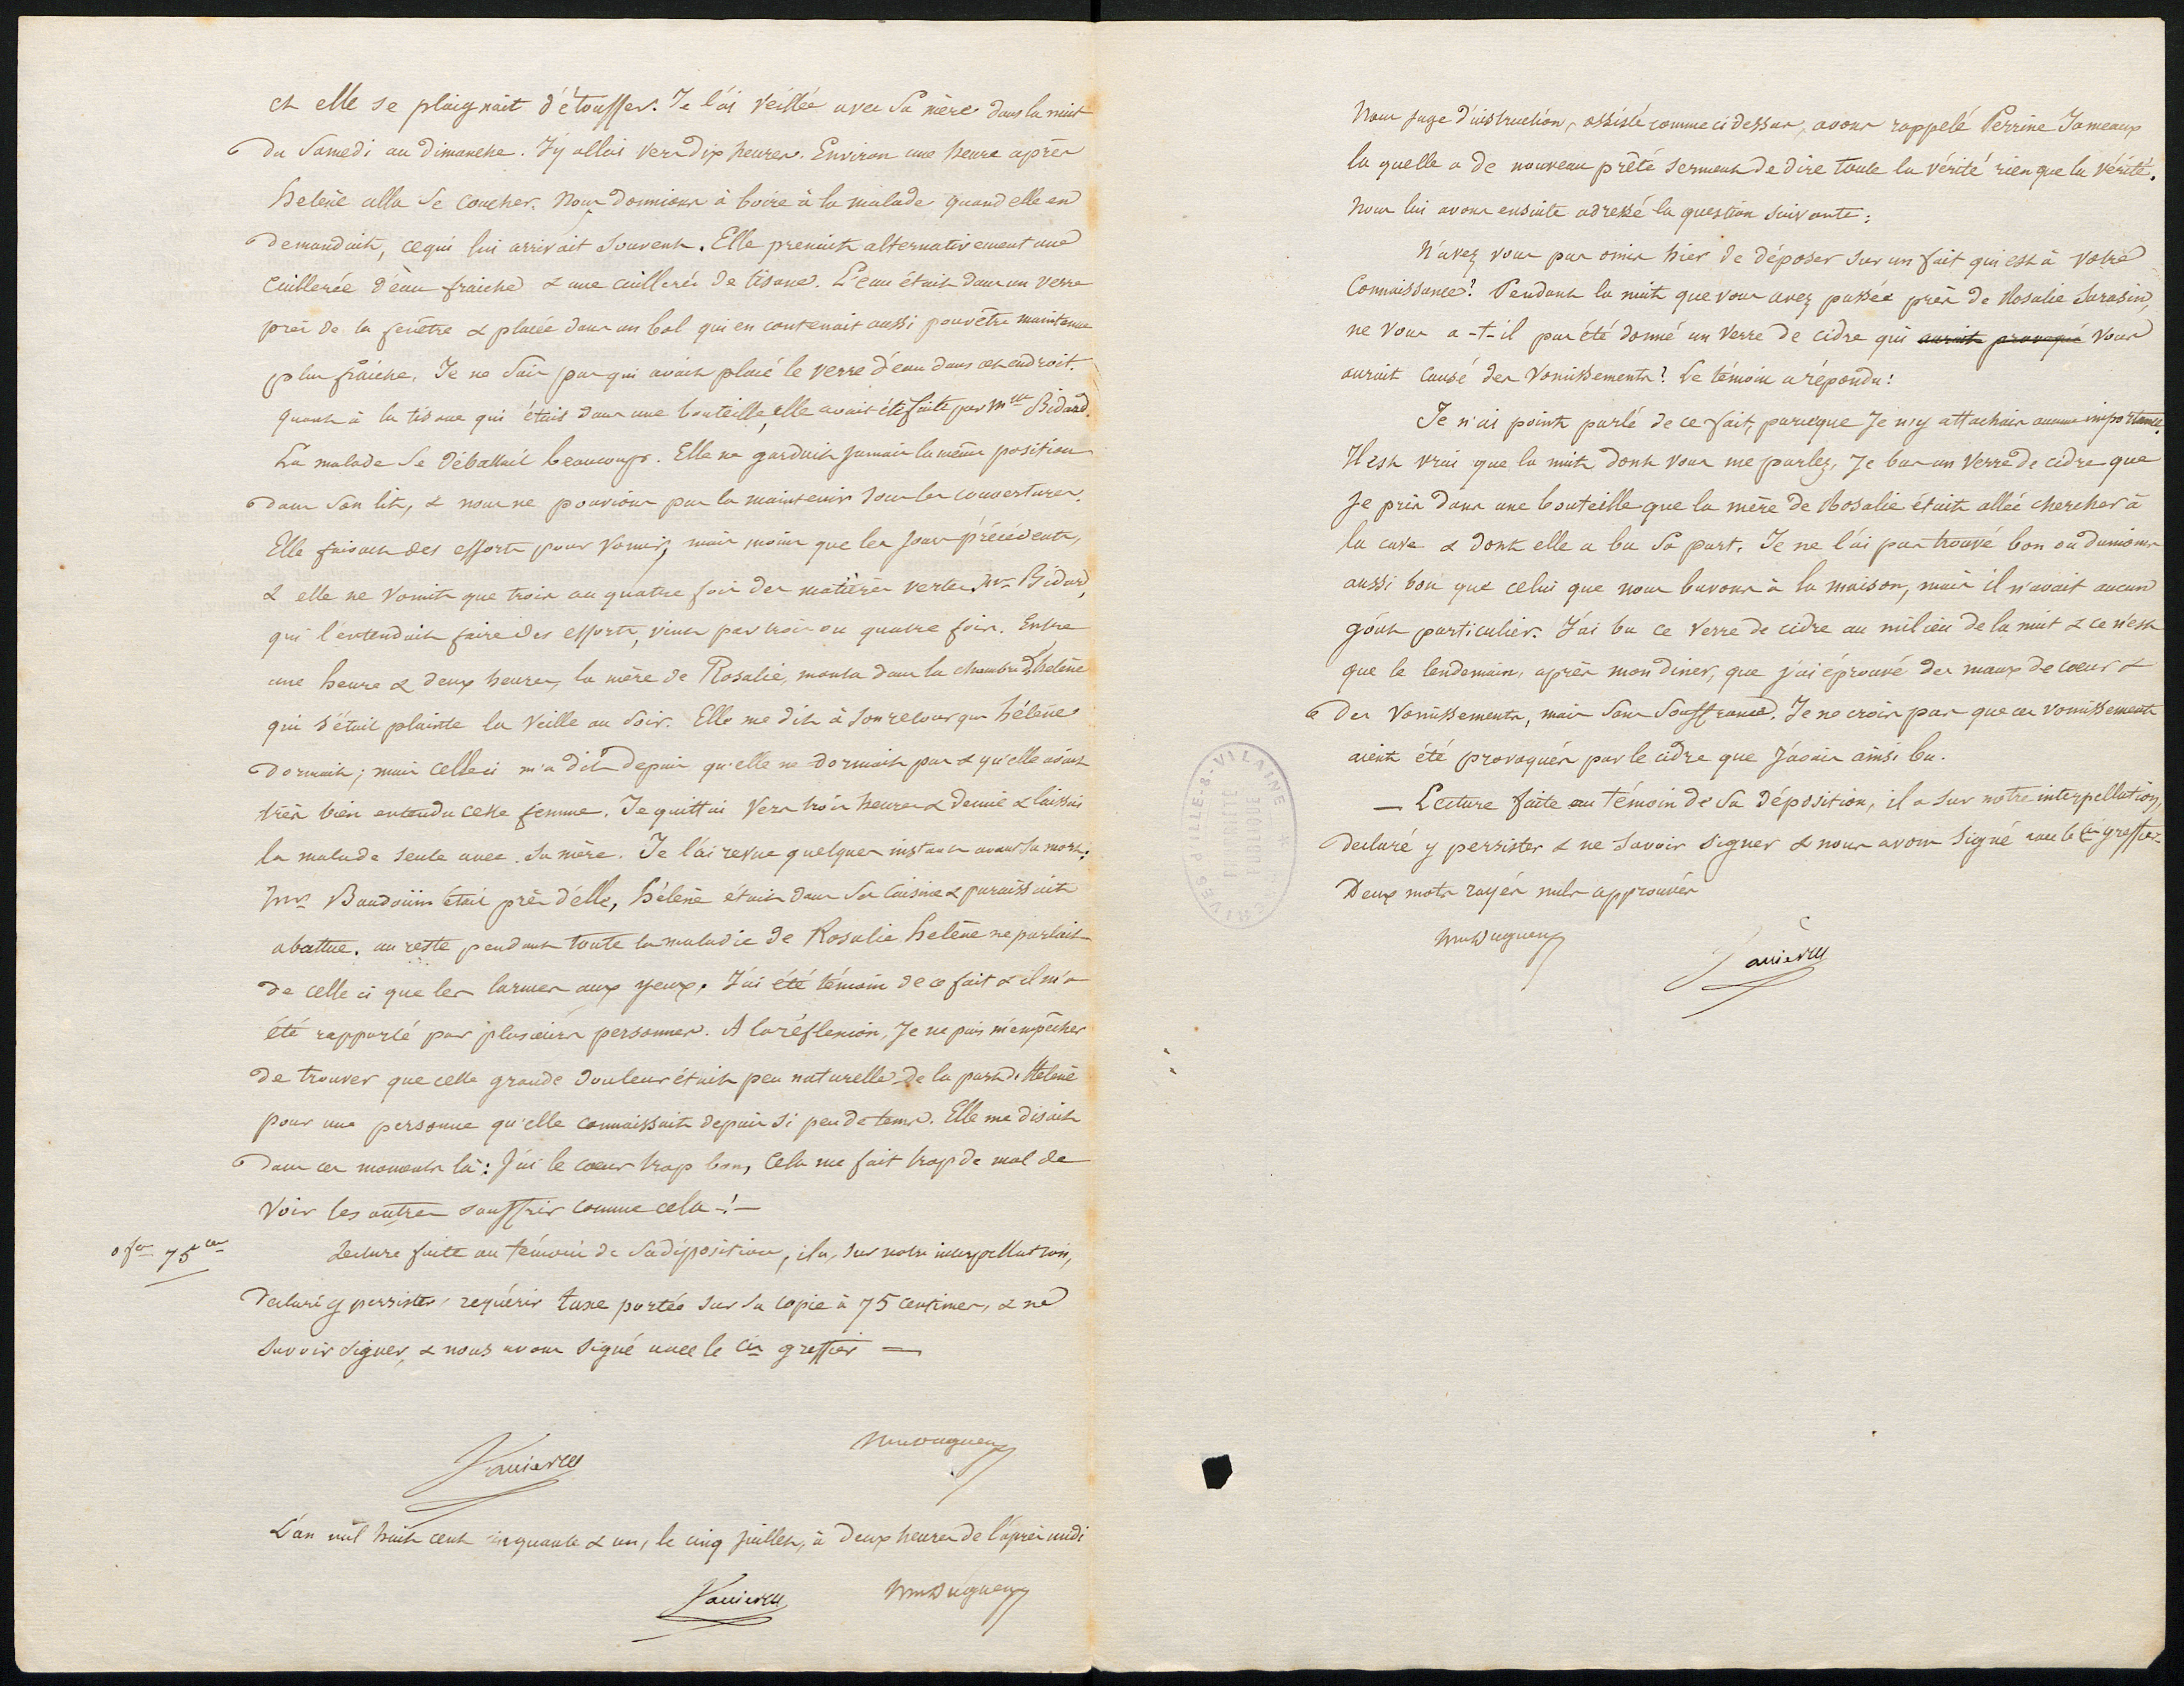 et elle se plaignait d'étouffer. Je l'ai veillée avec sa mère dans la nuit
du Samedi au dimanche. J'y allai vers dix heures. Environ une heure après
helène alla se coucher. Nous donnions à boire à la malade quand elle en
demandait, ce qui lui arrivait souvent. Elle prenait alternativement une
cuillerée d'eau fraiche & une cuillerée de tisane. L'eau était dans un verre
près de la fenêtre & placée dans un bol qui en contenait aussi pour être maintenue
plus fraiche. Je ne sais pas qui avait placé le verre d'eau dans cet endroit.
quant à la tisane qui était dans une bouteille, elle avait été faite par Mr Bidard.
La malade se débattait beaucoup. Elle ne gardait jamais la même position
dans son lit, & nous ne pouvions pas la maintenir sous les couvertures.
Elle faisait des efforts pour vomir, mais moins que les jours précédents,
& elle ne vomit que trois ou quatre fois des matières vertes. Mr Bidard,
qui l'entendait faire des efforts, vint par trois ou quatre fois. Entre
une heure & deux heures, la mère de Rosalie, monta dans la chambre d'helène
qui s'était plainte la veille au soir. Elle me dit à son retour que hélène
dormait; mais celle ci m'a dit depuis qu'elle ne dormait pas & qu'elle avait
très bien entendu cette femme. Je quittai vers trois heures & demie & laissai
la malade seule avec sa mère. Je l'ai revue quelques instants avant sa mort.
Mr Baudouin était près d'elle, hélène était dans sa cuisine & paraissait
abattue. au reste pendant toute la maladie de Rosalie helène ne parlait
de celle ci que les larmes aux yeux. J'ai été témoin de ce fait & il m'a
été rapporté par plusieurs personnes. A la réflexion, Je ne puis m'empêcher
de trouver que cette grande douleur était peu naturelle de la part d'Helène
pour une personne qu'elle connaissait depuis si peu de tems. Elle me disait
dans ces moments là: j'ai le coeur trop bon, cela me fait trop de mal de
voir les autres souffrir comme cela!-
0 fr 75 ces
Lecture faite au témoin de sa déposition, il a, sur notre interpellation,
déclaré y persister, requérir taxe portée sur sa copie à 75 centimes, & ne
savoir signer, & nous avons signé avec le cis greffier —
L'an mil huit cent cinquante & un, le cinq juillet, à deux heures de l'après midi
Nous juge d'instruction, assisté comme ci dessus, avons rappelé Perrine Jameaux
la quelle a de nouveau prêté serment de dire toute la vérité rien que la vérité.
Nous lui avons ensuite adressé la question suivante:
N'avez vous pas omis hier de déposer sur un fait qui est à votre
connaissance? Pendant la nuit que vous avez passée près de Rosalie Sarasin,
ne vous a-t-il pas été donné un verre de cidre qui aurait provoqué vous
aurait causé des vomissements? Le témoin a répondu:
Je n'ai point parlé de ce fait, parceque Je n'y attachais aucune importance.
Il est vrai que la nuit dont vous me parlez, Je bus un verre de cidre que
je pris dans une bouteille que la mère de Rosalie était allée chercher à
la cave & dont elle a bu sa part. Je ne l'ai pas trouvé bon ou du moins
aussi bon que celui que nous buvons à la maison, mais il n'avait aucun
goût particulier. J'ai bu ce verre de cidre au milieu de la nuit & ce n'est
que le lendemain, après mon diner, que j'ai éprouvé des maux de coeur &
des vomissements, mais sans souffrance. Je ne crois pas que ces vomissements
aient été provoqués par le cidre que j'avais ainsi bu.
— Lecture faite au témoin de sa déposition, il a sur notre interpellation,
déclaré y persister & ne savoir signer & nous avons signé avec le cis greffier
Deux mots rayés nuls approuvés
ARCHIVES D'ILLE-&-VILAINE